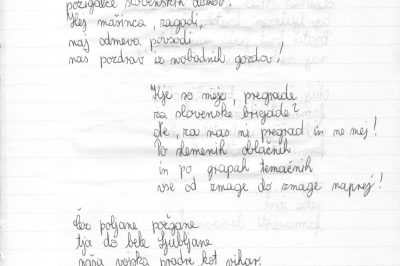 požigavce slovenskih domov!
Hej mašinca, zagodi,
naj odmeva povsodi
naš pozdrav iz svobodnih gozdov!
Kje so meje, pregrade
za slovenske brigade?
Ne, za nas ni pregrad in ne mej!
Po slemenih oblačnih
in po grapah temačnih
vse od zmage do zmage naprej!
Čez poljane požgane
tja do bele Ljubljane
naša vojska prodre kot vihar.